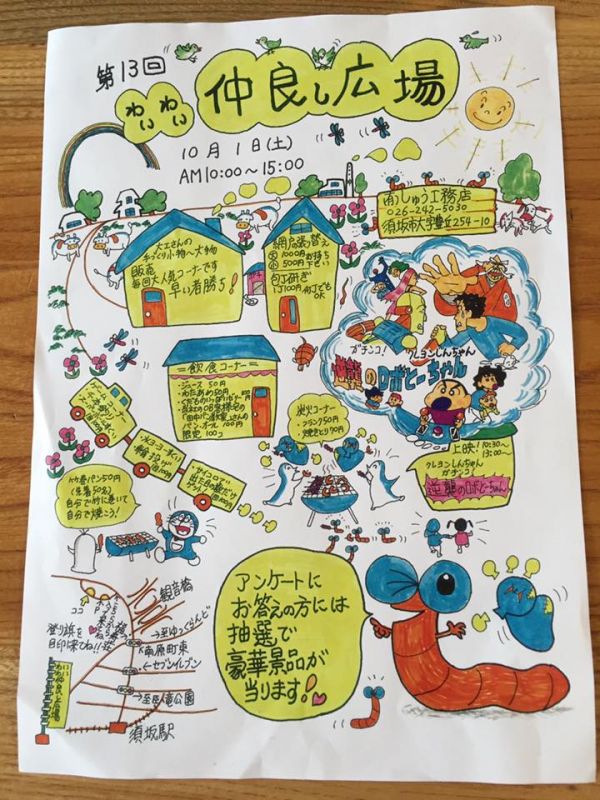 第13回
わい わい
仲良し広場
10月1日(土)
AM10:00〜15:00
(有)しゅう工務店
026-242-5030
須坂市大字豊丘254-10
大工さんの
手づくり小物〜大物
販売
毎回大人気コーナーです
早い者勝ち!
網戸張り替え
大 1000円 お持ち
小 500円 下さい
包丁研ぎ
1丁100円 何丁でも
OK
ガチンコ!
クレヨンしんちゃん
逆襲のロボとーちゃん
=飲食コーナー=
・ジュース 50円
・わたあめ 50円
パン・オール100円
限定 100コ
炭火コーナー
・フランク50円
・焼きとり70円
上映:10:30〜
13:00〜
クレヨンしんちゃん
ガチンコ!
逆襲のロボとーちゃん
ゲーム
コーナー
水ヨーヨーつり
輪投げ
サイコロで
出た目の数だけ
竹巻パン50円
(先着50名)
自分で竹に巻いて
自分で焼こう!
アンケートに
お答えの方には
抽選で
豪華景品が
当ります!
観音橋
ココ
P
→至ゆっくらんど
登り旗を
目印に来てね!!
南原町東
←セブンイレブン
→至臥竜公園
わいわい仲良し広場
須坂駅